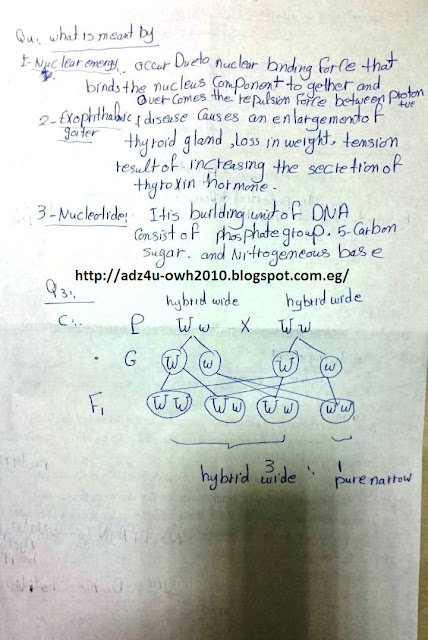 Qu:. what is meant by
1- Nuclear energy: occur Due to nuclear binding force that
binds the nucleus component to gether and
over comes the repulsion force between proton
+ve
2- Exophthalmic goiter: disease causes an enlargement of
thyroid gland, loss in weight, tension
result of increasing the secretion of
thyroxin hormone.
3- Nucleotide: It is building unit of DNA
Consist of phosphate group. 5-Carbon
sugar. and Nitrogeneous base
http://adz4u-owh2010.blogspot.com.eg/
Q3:.
hybrid wide hybrid wide
C:. P Ww X Ww
G W w W w
F1 WW Ww Ww ww
3 : 1
hybrid wide pure narrow